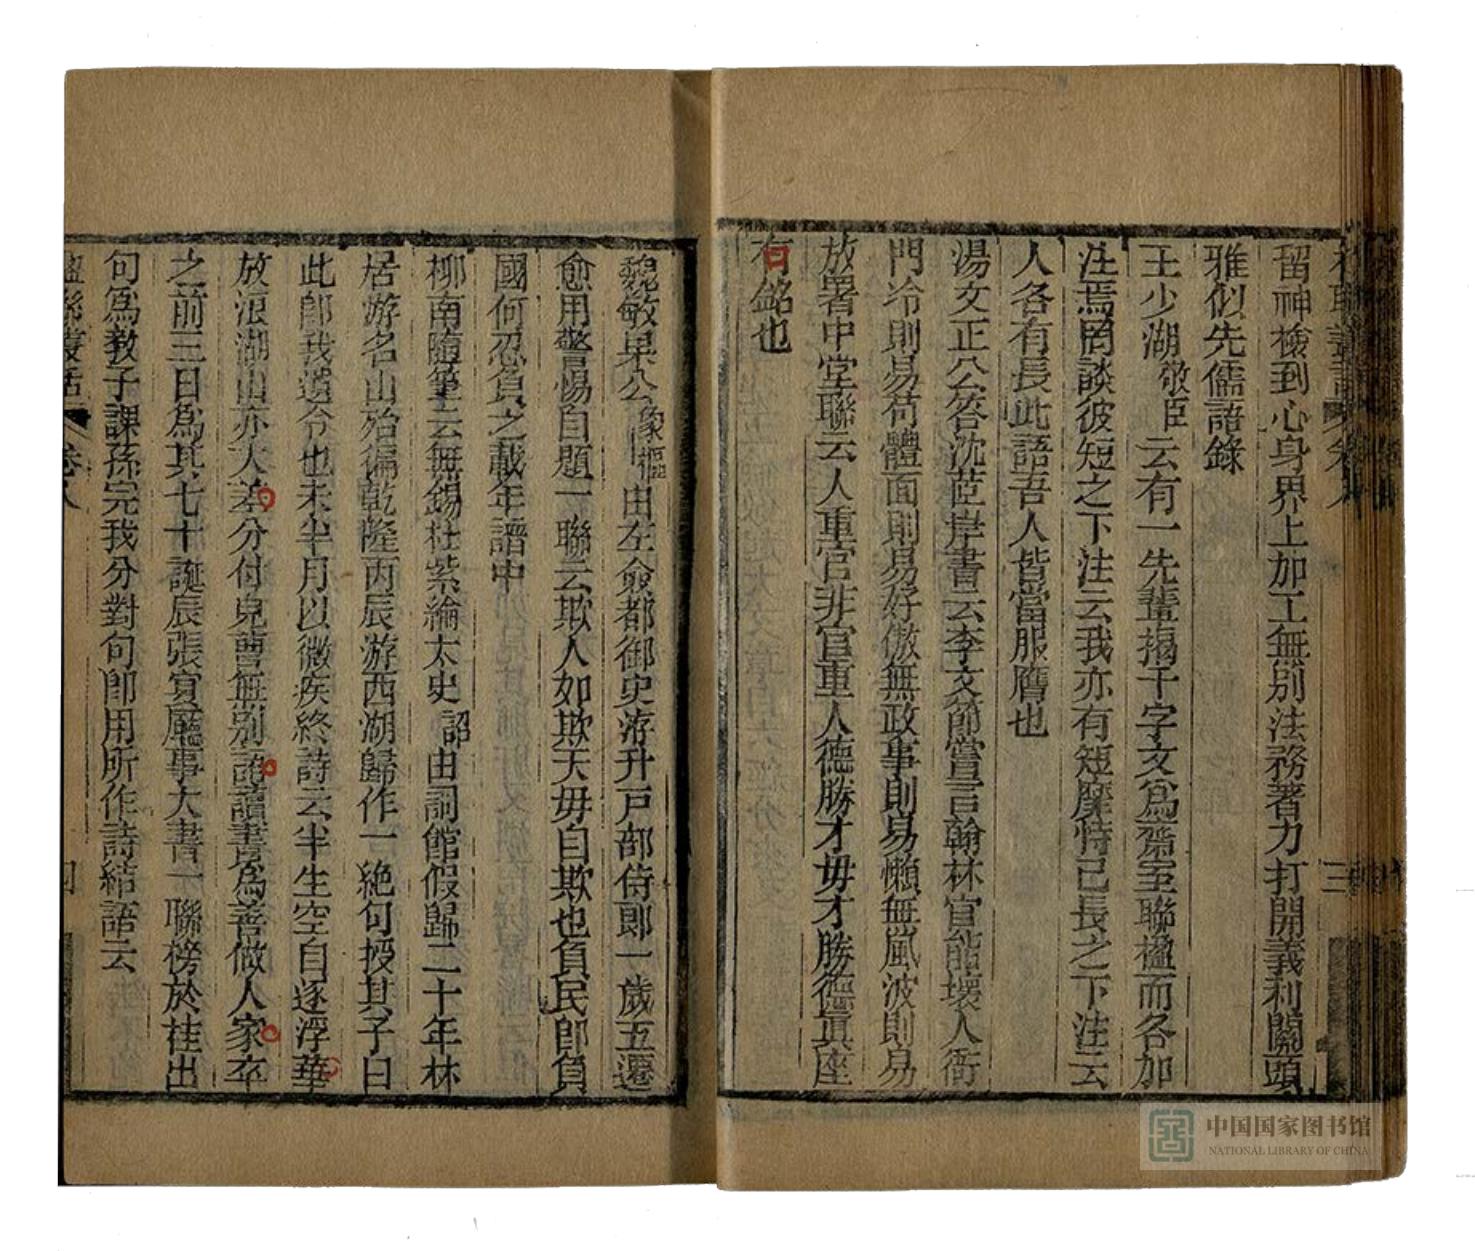 留神檢到心身界上加工無別法務著力打開義利關頭
雅似先儒語錄
王少湖敬臣云有一先輩揭千字文爲齋室聯楹而各加
注焉罔談彼短之下注云我亦有短靡恃己長之下注云
人各有長此語吾人皆當服膺也
湯文正公答沈芷岸書云李文節嘗言翰林官能壞人衙
門冷則易荷體面則易好傲無政事則易懶無風波則易
放署中堂聯云人重官非官重人德勝才毋才勝德眞座
右銘也
三
魏敏果公象樞由左僉都御史洊升戸部侍郎一歲五遷
愈用警惕自題一聯云欺人如欺天毋自欺也負民卽負
國何忍負之載年譜中
柳南隨筆云無錫杜紫綸太史詔由詞館假歸二十年林
居游名山殆徧乾隆丙辰游西湖歸作一絶句授其子曰
此卽我遺令也未半月以微疾終詩云半生空自逐浮華
放浪湖山亦大差分付兒曹無別語讀書爲善做人家卒
之前三日爲其七十誕辰張賓廳事大書一聯榜於柱出
句爲敎子課孫完我分對句卽用所作詩結語云
卷八
四
中国国家图书馆
NATIONAL LIBRARY OF CHINA